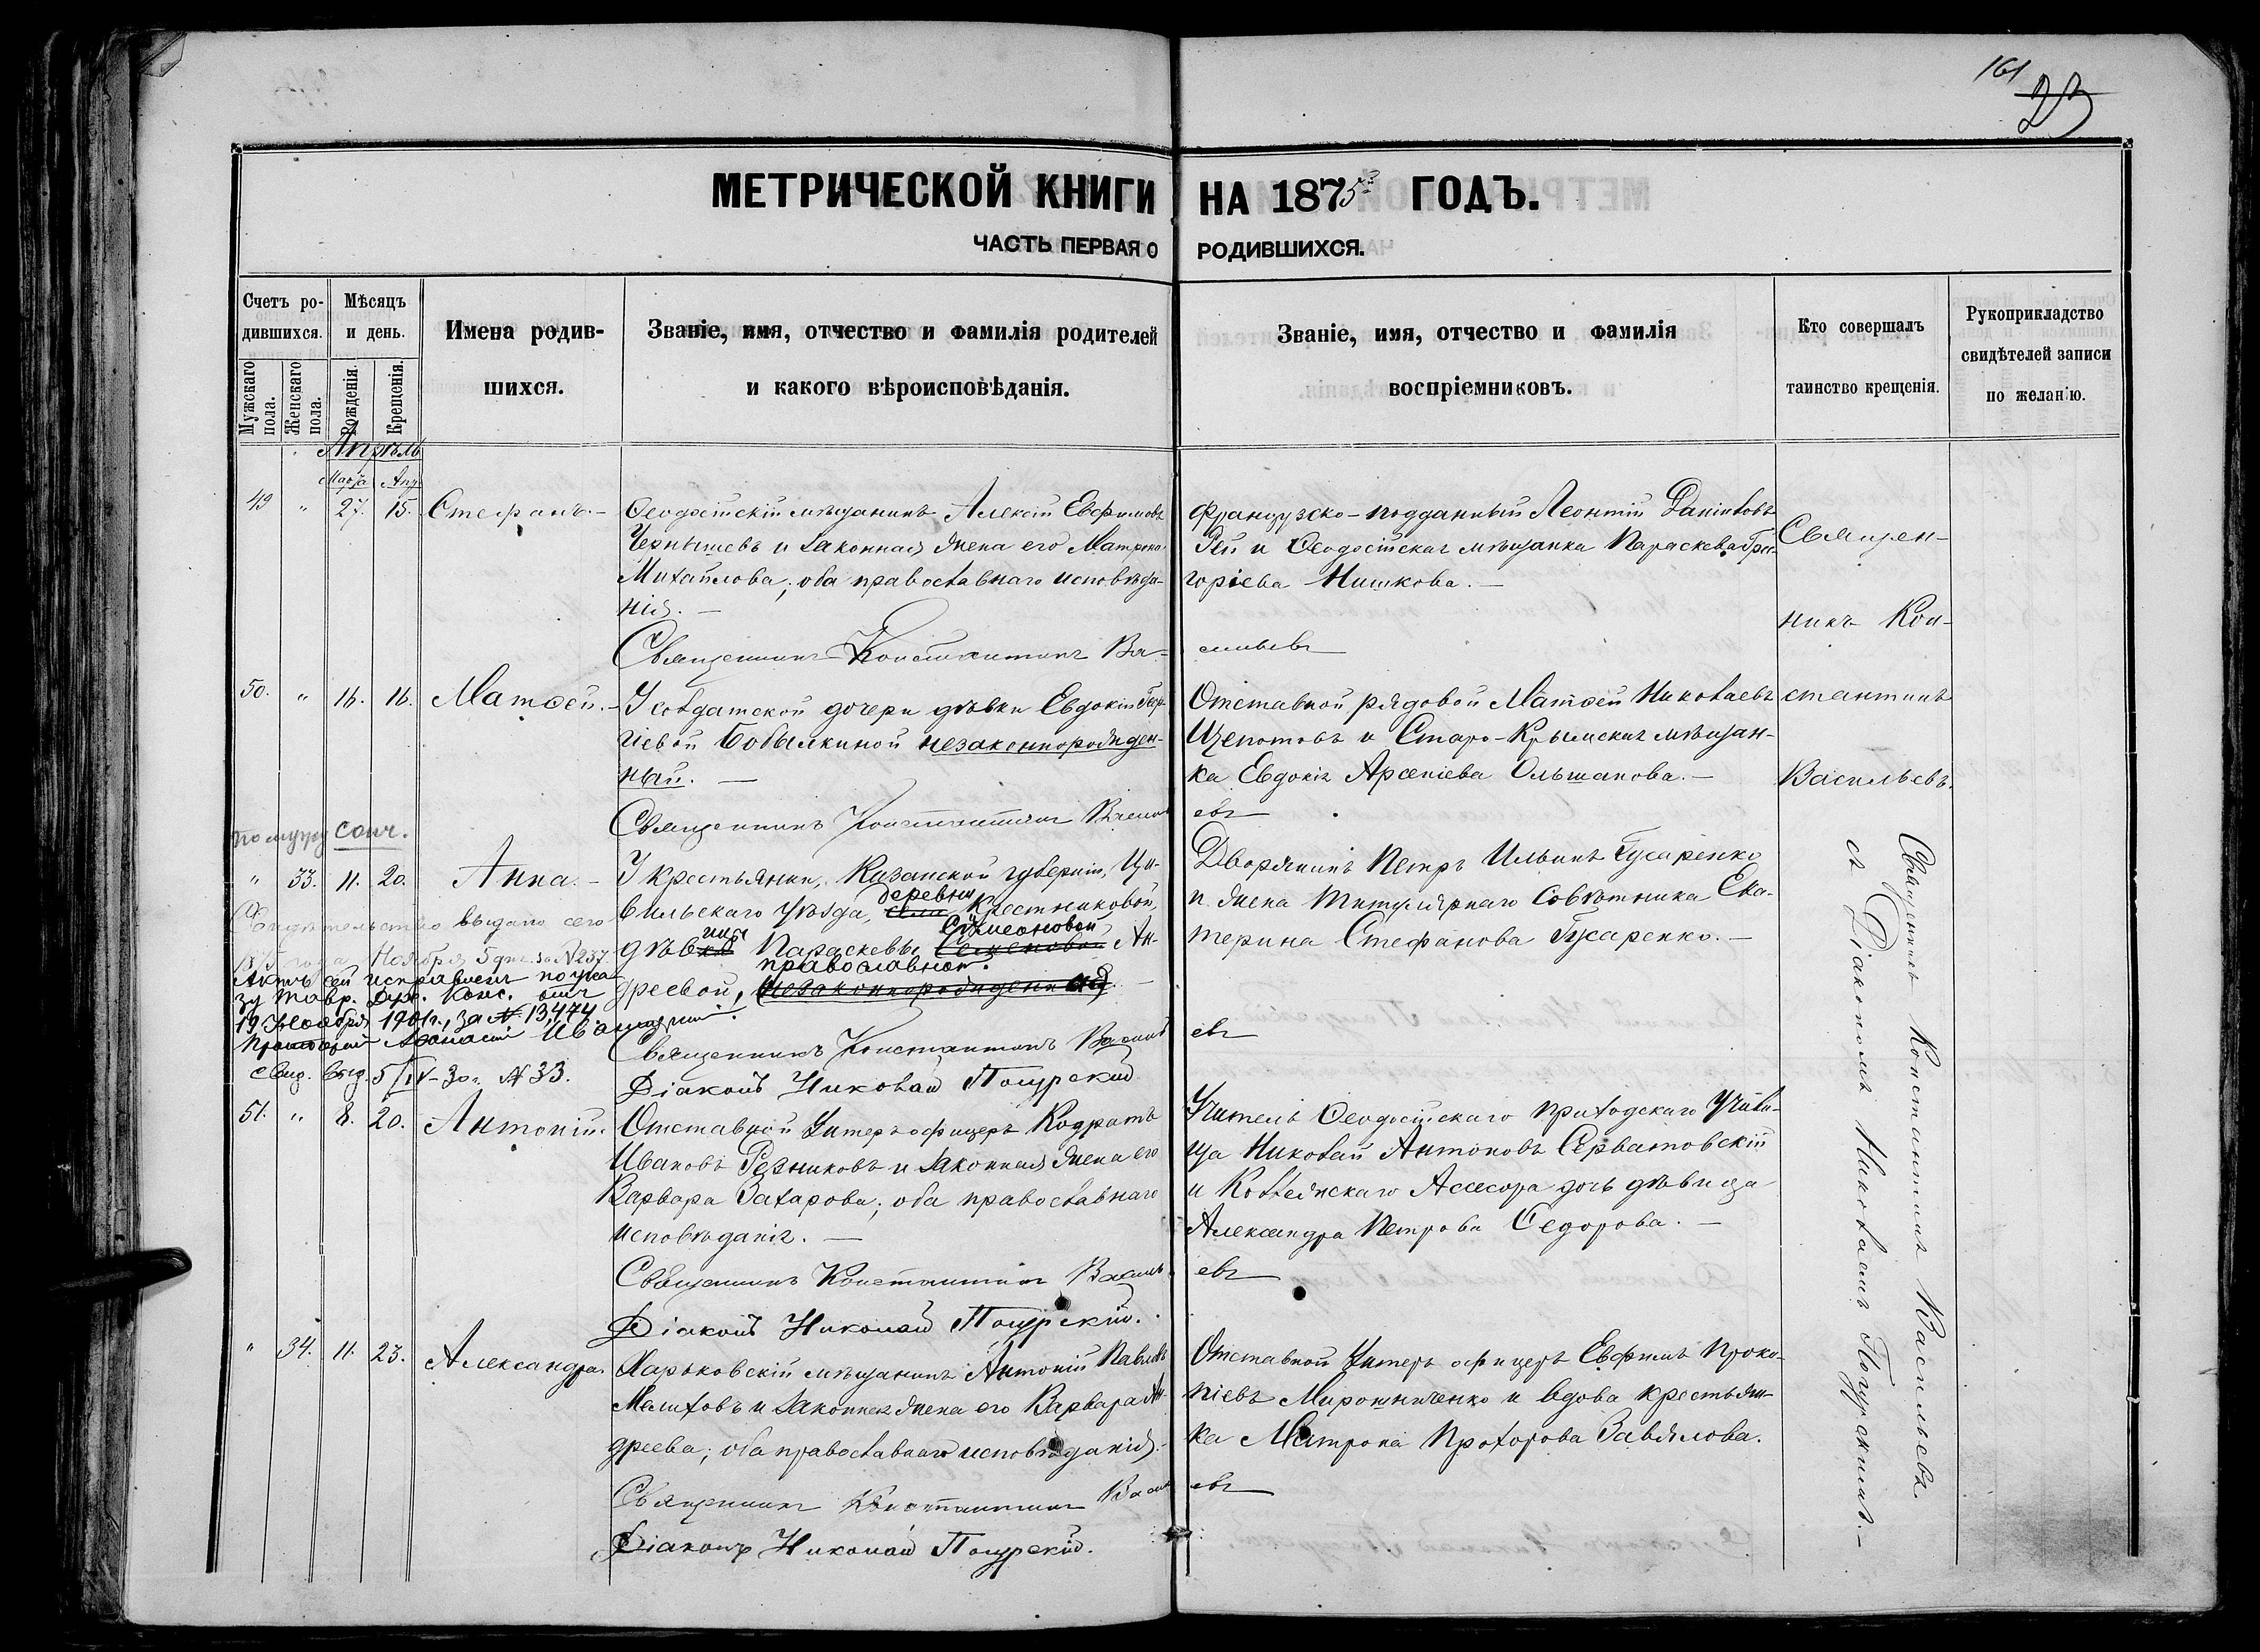 161
23
МЕТРИЧЕСКОЙ КНИГИ НА 1875й ГОДЪ.
ЧАСТЬ ПЕРВАЯ О РОДИВШИХСЯ.
Счетъ ро-
дившихся.
Мужскаго
пола.
Женскаго
пола.
Мѣсяцъ
и день.
Рожденія.
Крещенія.
Имена родив-
шихся.
Званіе, имя, отчество и фамилія родителей
и какого вѣроисповѣданія.
Званіе, имя, отчество и фамилія
воспріемниковъ.
Кто совершалъ
таинство крещенія.
Рукоприкладство
свидѣтелей записи
по желанію.
Апрѣль
Марта Апр
49 " 27. 15. Стефанъ.-
Ѳеодосійскій мѣщанинъ Алексій Евфимовъ
Чернышевъ и законная жена его Матрона
Михайлова; оба православнаго исповѣда-
нія. —
Священникъ Константинъ Ва-
сильевъ
Французско-подданный Леонтій Даниловъ
Рей и Ѳеодосійская мѣщанка Параскева Гри-
горіева Нишкова. —
Священ-
никъ Кон-
стантинъ
Васильевъ.
50. " 16. 16. Матѳей.-
У солдатской дочери дѣвки Евдокіи Геор-
гіевой Бобылкиной незаконнорожден-
ный. —
Священникъ Константинъ Василь
евъ
Отставной рядовой Матѳей Николаевъ
Щепотовъ и Старо-Крымская мѣщан-
ка Евдокія Арсеніева Ольшанова. —
по мужу Санч.
" 33. 11. 20. Анна.-
У крестьянки, Казанской губерніи, Ци-
вильскаго уѣзда, села деревни Крестниковой,
дѣвки цы Параскевы Семеновой Симеоновой Ан-
дреевой, незаконнорожденная православной. —
Священникъ Константинъ Василь
евъ
Діаконъ Николай Погурскій
Дворянинъ Петръ Ильинъ Гусаренко
и жена Титулярнаго Совѣтника Ека-
терина Стефанова Гусаренко. —
Свидѣтельство выдано сего
года Ноября 5 дня за № 237
Актъ сей исправленъ по ука-
зу Тавр. Дух. Конс. отъ
19 Ноября 1901г., за № 13,474.
Протоіерей
Свид. выд. 5/IV-30г. № 33.
51. " 8. 20. Антоній.
Отставной Унтеръ-офицеръ Кодратъ
Ивановъ Резниковъ и законная жена его
Варвара Захарова; оба православнаго
исповѣданія. —
Священникъ Константинъ Василь
евъ
Діаконъ Николай Погурскій.
Учитель Ѳеодосійскаго приходскаго Учили-
ща Николай Антоновъ Серватовскій
и Коллежскаго Ассесора дочь дѣвица
Александра Петрова Седорова. —
" 34. 11. 23. Александра.
Харьковскій мѣщанинъ Антоній Павловъ
Мелиховъ и законная жена его Варвара Ан-
дреева; оба православнаго исповѣданія.-
Священникъ Константинъ Васил
евъ
Діаконъ Николай Погурскій.
Отставной Унтеръ офицеръ Евфимъ Проко-
піевъ Мирошниченко и вдова крестьян-
ка Матрона Прохорова Завялова.
Священникъ Константинъ Васильевъ
съ Діакономъ Николаемъ Погурскимъ.-